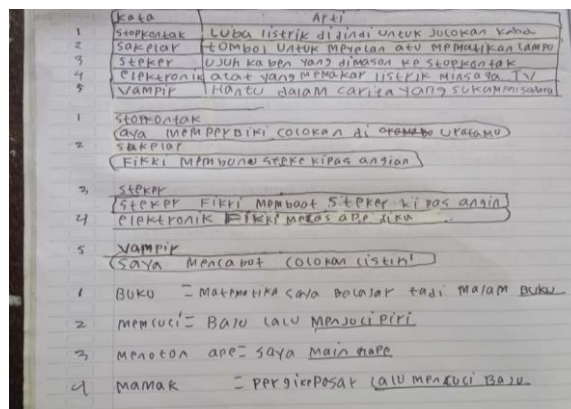 kata Arti
1 stopkontak Luba listrik didindi untuk Jolokan kaba
2 sakelar tombol untuk meyelan atu mematikan lampu
3 steker ujuh kaben yang dimason ke stopkontak
4 elektronik alat yang memakar listrik minsaga TV
5 vampir Hantu dalam carita yang suka
1 stopkontak
aya memperbiki colokan di
2 sakelar
Fikki membong steke kipas angian
3 steker
steker Fikri membaot steker kipas angin
4 elektronik Fikri
5 vampir
saya mencabut colokan listin
1 Buku = matematika saya belajar tadi malam Buku
2 memcuci = Baju lalu menjuci piri
3 menoton ape = saya main hape
4 mamak = pergikeposar lalu mencuci Baju